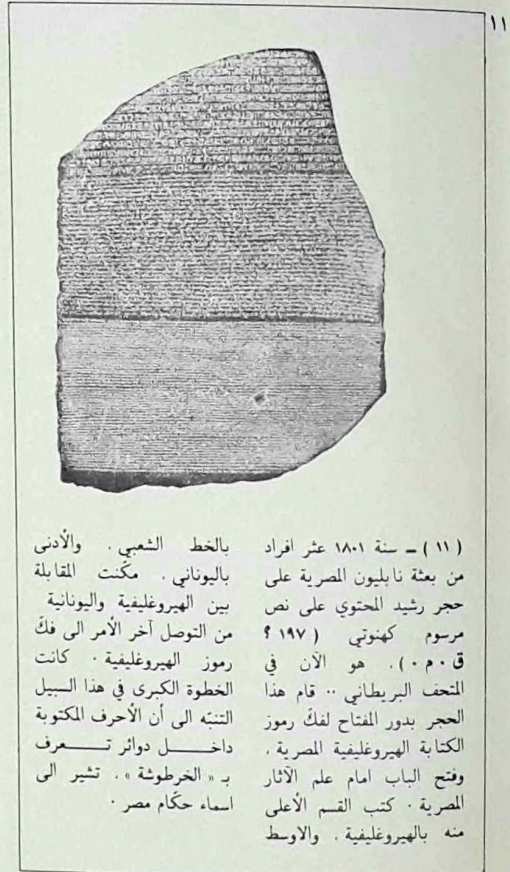 ١١
( ١١ ) ـ سنة ١٨٠١ عثر افراد
من بعثة نابليون المصرية على
حجر رشيد المحتوي على نص
مرسوم كهنوتي ( ١٩٧ ؟
ق ٠ م ٠ ) . هو الآن في
المتحف البريطاني ٠٠ قام هذا
الحجر بدور المفتاح لفكّ رموز
الكتابة الهيروغليفية المصرية .
وفتح الباب امام علم الآثار
المصرية ٠ كتب القسم الأعلى
منه بالهيروغليفية . والاوسط
بالخط الشعبي . والأدنى
باليوناني . مكّنت المقابلة
بين الهيروغليفية واليونانية
من التوصل آخر الأمر الى فكّ
رموز الهيروغليفية ٠ كانت
الخطوة الكبرى في هذا السبيل
التنبّه الى أن الأحرف المكتوبة
داخل دوائر تعرف
بـ « الخرطوشة » . تشير الى
اسماء حكّام مصر ٠